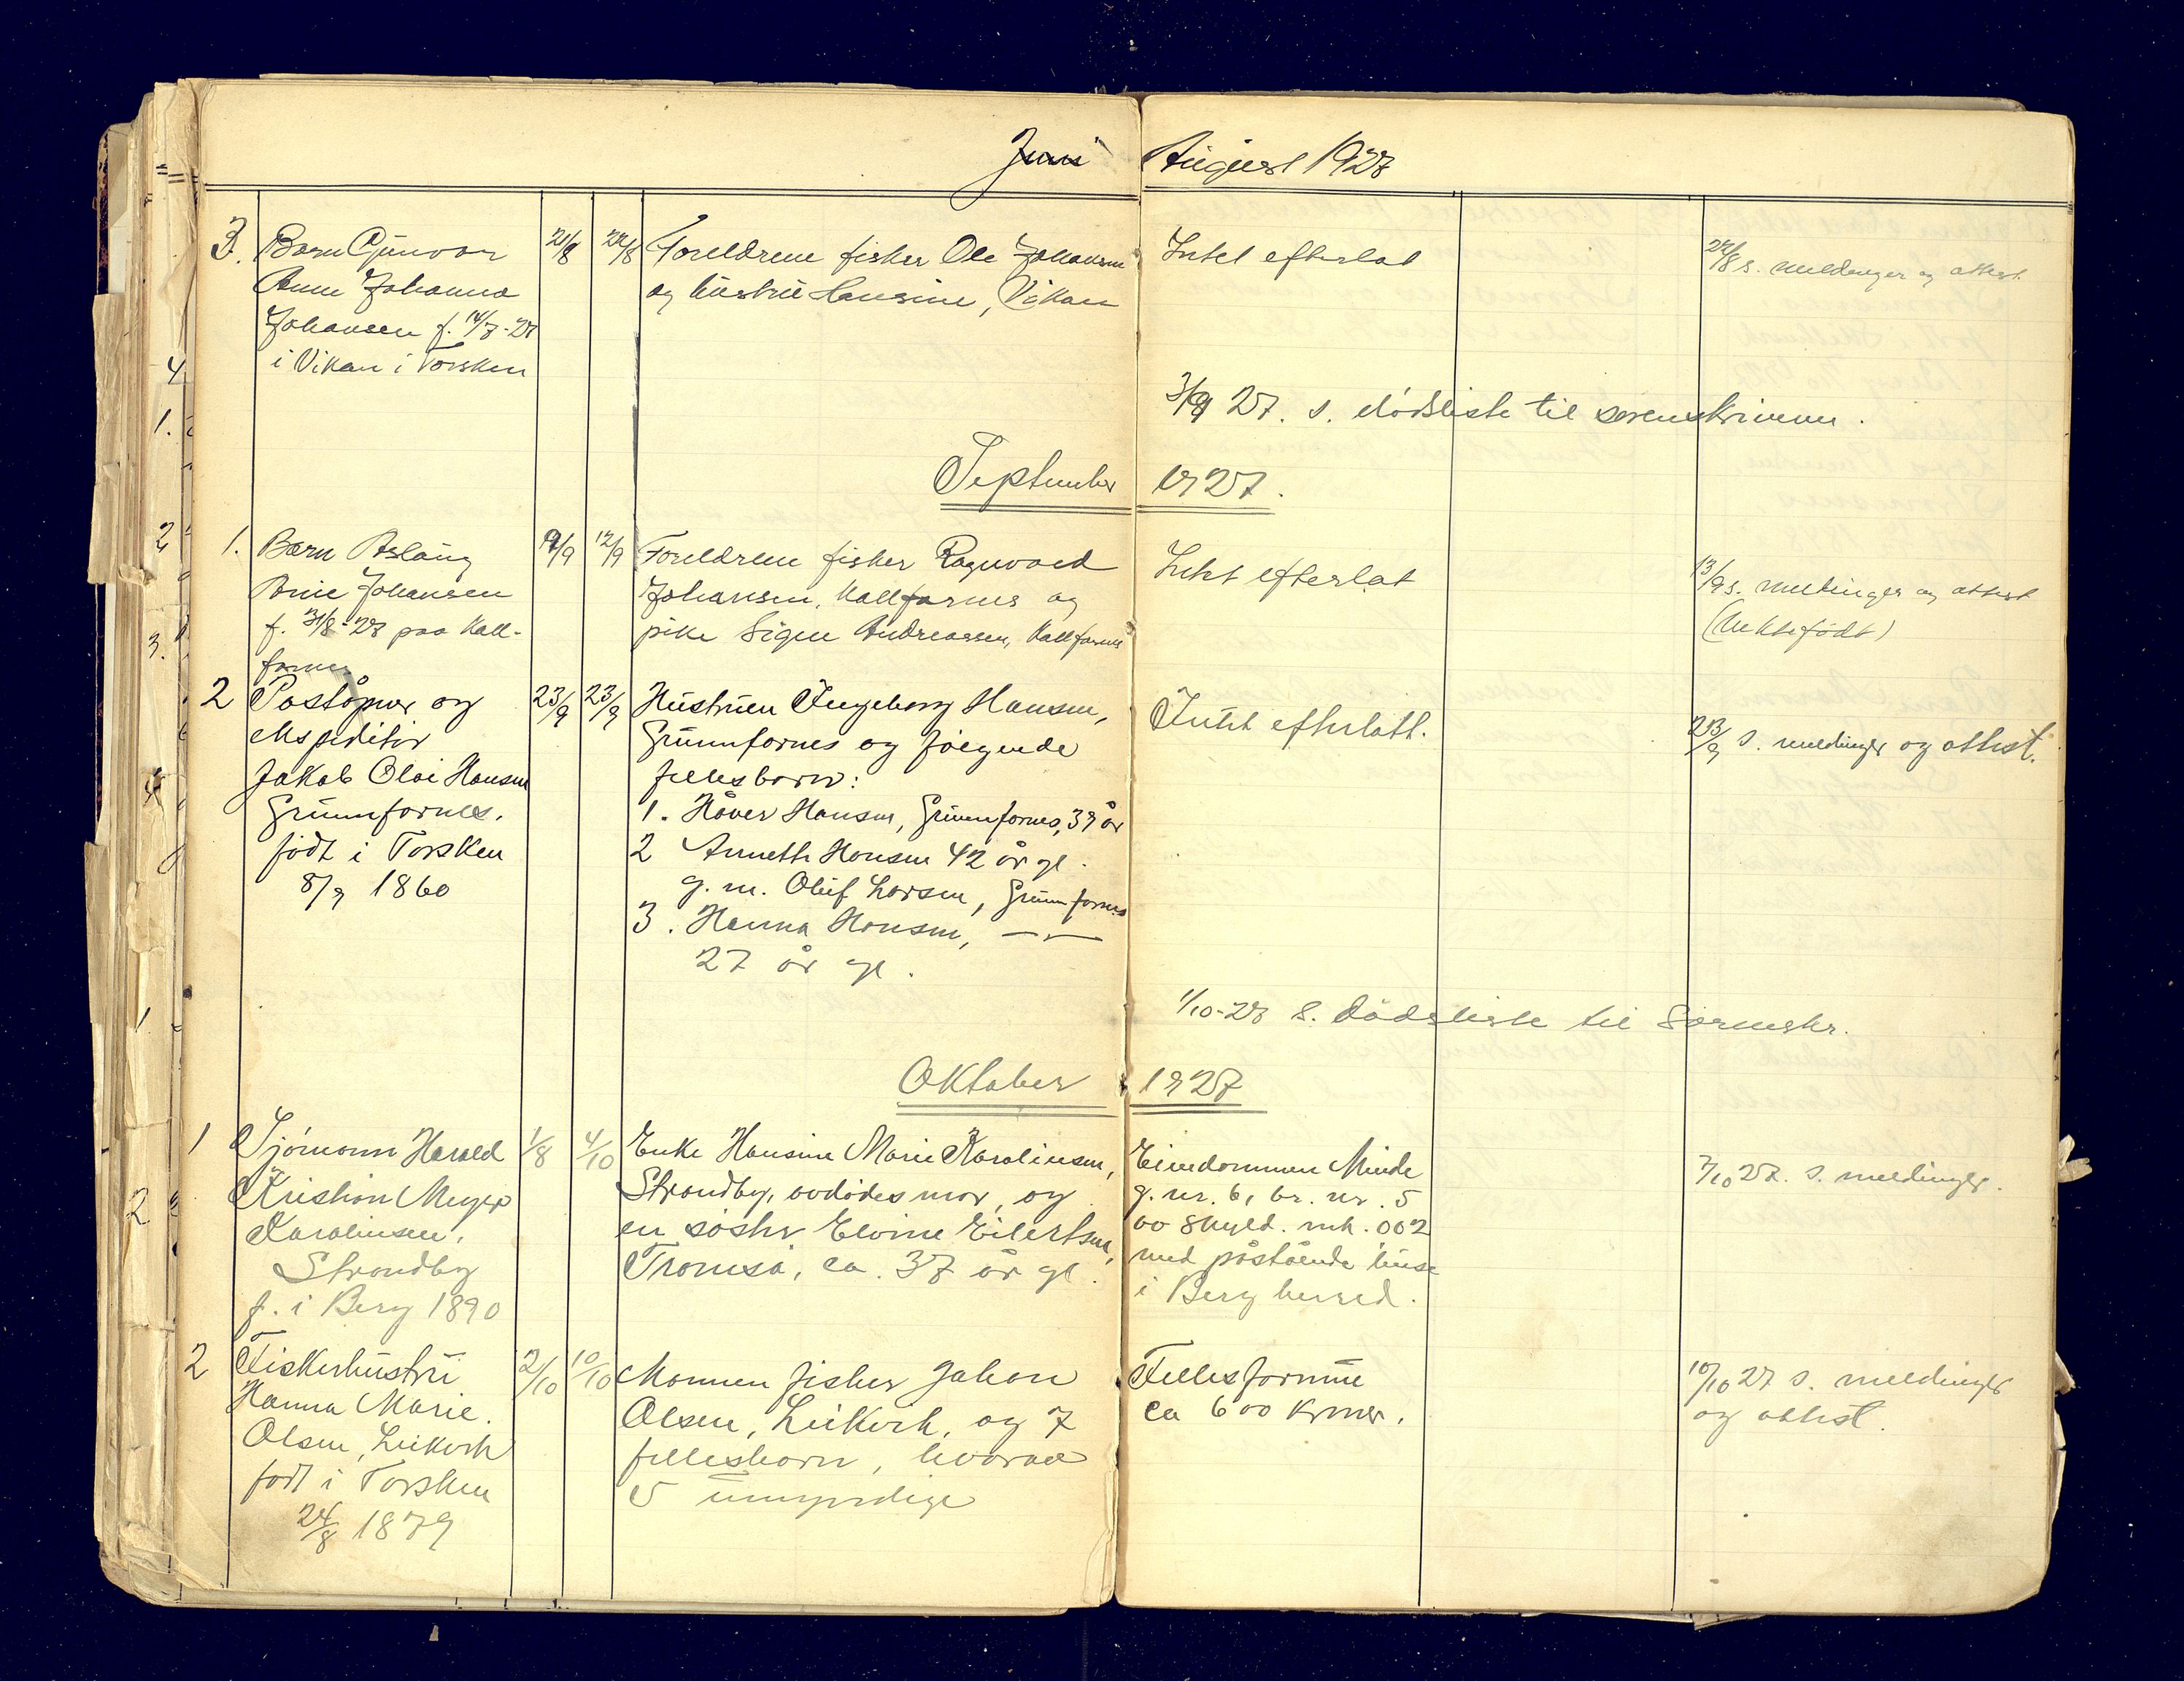 Juni August 1927
3. Barn Gunvor
Anne Johanna
Johansen f. 14/7-27
i Vikan i Torsken
21/8 22/8
Foreldrene fisker Ole Johansen
og hustru Hansine, Vikan
Intet efterlat
22/8 s. meldinger og attest
3/9 27. s. dødsliste til sorenskriveren.
September 1927.
1. Barn Aslaug
Brie Johansen
f. 31/8-27 paa Kall-
farnes
9/9 12/9
Foreldrene fisker Ragnvald
Johansen, Kallfarnes og
pike Signe Andreassen, Kallfarnes
Intet efterlat
13/9 s. meldinger og attest
(Uektefødt)
2 Poståpner og
ekspeditør
Jakob Olai Hansen
Grunnfarnes.
født i Torsken
8/9 1860
23/9 23/9
Hustruen Ingeborg Hansen,
Grunnfarnes og følgende
fellesbarn:
1. Håver Hansen, Grunnfarnes, 39 år
2 Annette Hansen 42 år gl.
g. m. Oluf Larsen, Grunnfarnes
3. Hanna Hansen, — " —
27 år gl.
Intet efterlatt.
23/9 s. meldinger og attest.
1/10-27 s. dødsliste til Sorenskr.
Oktober 1927
1 Sjømann Harald
Kristian Meyer
Karolinsen,
Strandby
f. i Berg 1890
1/8 4/10
Enke Hansine Marie Karolinsen,
Strandby, avdødes mor, og
en søster Elvine Eilertsen,
Tromsø, ca. 37 år gl.
Eiendommen Minde
g. nr. 6, br. nr. 5
av skyld. mk. 002
med påstående huse
i Berg herred.
7/10 27. s. meldinger.
2 Fiskerhustru
Hanna Marie
Olsen, Leikvik
født i Torsken
24/8 1879
2/10 10/10
Mannen fisker Johan
Olsen, Leikvik, og 7
fellesbarn, hvorav
5 umyndige
Fellesformue
ca 600 kroner.
10/10 27 s. meldinger
og attest.